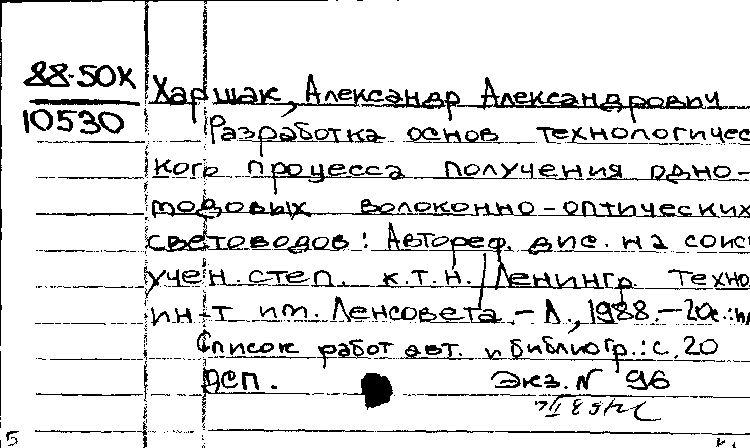 88-50К
10530
Харшак, Александр Александрович
Разработка основ технологичес
кого процесса получения одно-
модовых волоконно-оптических
световодов: Автореф. дис. на соис
учен. степ. к.т.н. / Ленингр. техно
ин-т им. Ленсовета. - Л., 1988. - 20с.: ил
Список работ авт. и библиогр.: с. 20
ДСП. Экз. N 96
5